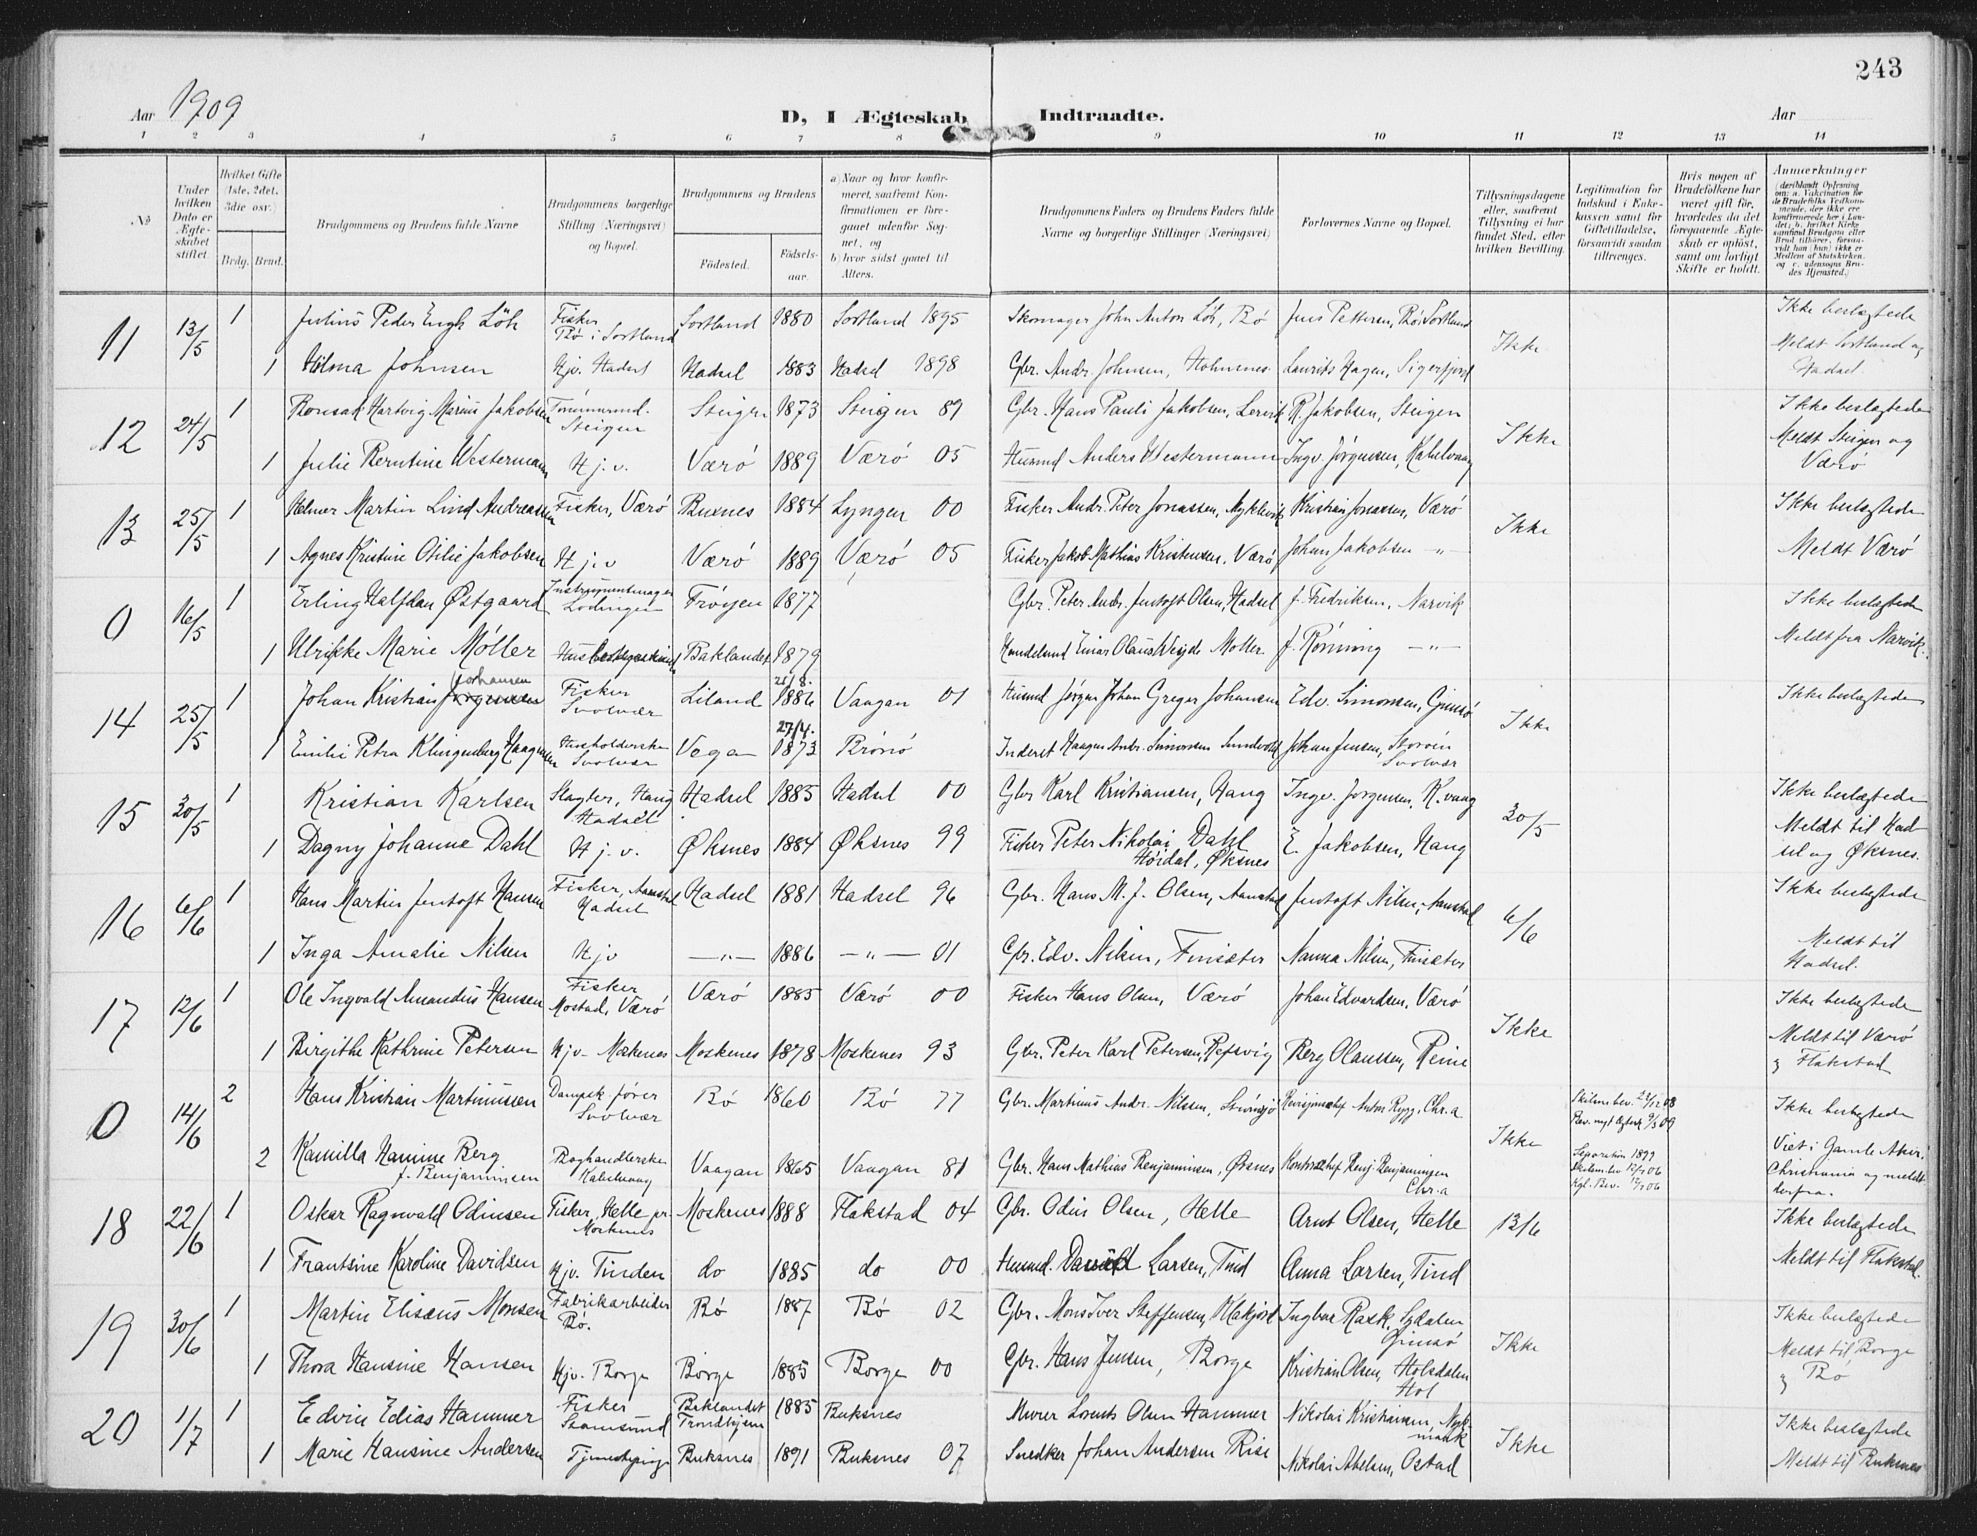 243
Aar 1909
D, I Ægteskab Indtraadte.
Aar
1 2 3 4 5 6 7 8 9 10 11 12 13 14
No
Under hvilken Dato er Ægteskabet stiftet.
Hvilket Gifte (1ste, 2det, 3die osv.)
Brdg. Brud.
Brudgommens og Brudens fulde Navne
Brudgommens borgerlige Stilling (Næringsvei) og Bopæl.
Brudgommens og Brudens
Fødested.
Fødselsaar.
a) Naar og hvor konfirmeret, saafremt Konfirmationen er foregaaet udenfor Sognet, og
b) hvor sidst gaaet til Alters.
Brudgommens Faders og Brudens Faders fulde Navne og borgerlige Stillinger (Næringsvei)
Forlovernes Navne og Bopæl.
Tillysningsdagene eller, saafremt Tillysning ei har fundet Sted, efter hvilken Bevilling.
Legitimation for Indskud i Enkekassen samt for Giftetilladelse, forsaavidt saadan tiltrænges.
Hvis nogen af Brudefolkene har været gift før, hvorledes da det foregaaende Ægteskab er opløst, samt om lovligt Skifte er holdt.
Anmærkninger
11 13/5 1 Julius Peder Engh Löh Fisker Bø i Sortland Sortland 1880 Sortland 1895 Skomager John Anton Löh, Bø Jens Pettersen, Bø, Sortland Ikke Ikke beslægtede
1 Hilma Johnsen Hjv. Hadsel Hadsel 1883 Hadsel 1898 Gbr. Andr. Johnsen, Holmsnes Laurits Hagen, Sigerfjord Meldt Sortland og Hadsel.
12 24/5 1 Hartvig Marius Jakobsen Steigen Steigen 1873 Steigen 89 Gbr. Hans Pauli Jakobsen, Leirvik R. Jakobsen, Steigen Ikke Ikke beslægtede
1 Julie Berntine Westermann Hjv. Værö 1889 Værö 05 Husmd Anders Westermann Ingv. Jørgensen, Kabelvaag Meldt Steigen og Værö
13 25/5 1 Helmer Martin Lind Andreassen Fisker, Værö Buxnes 1884 Lyngen 00 Fisker Andr. Peter Jonassen, Myklevik Kristian Jonassen, Værö Ikke Ikke beslægtede
1 Agnes Kristine Otilie Jakobsen Hjv Værö 1889 Værö 05 Fisker Jakob Mathias Kristensen, Værö Johan Jakobsen -"- Meldt Værö
0 16/5 1 Erling Halfdan Østgaard Instrumentmager Lödingen Fröyen 1877 Gbr. Peter Andr. Jentoft Olsen, Hadsel J. Fredriksen, Narvik Ikke beslægtede
1 Ulrikke Marie Möller Husbestyrerinde Baklandet 1879 Handelsmd Einar Olaus Weyde Moller J. Rönning -"- Meldt fra Narvik.
14 25/5 1 Johan Kristian Jörgensen Johansen Fisker Svolvær Liland 26/8. 1886 Vaagan 01 Husmd Jørgen Johan Greger Johansen Edv. Simonsen, Gimsö Ikke Ikke beslægtede
1 Emilie Petra Klingenberg Haagensen Husholderske Svolvær Vega 27/4. 1873 Brönö Inderst Haagen Andr. Simonsen Sundvold Johan Jensen, Svolvær
15 30/5 1 Kristian Karlsen Slagter, Haug Hadsel Hadsel 1885 Hadsel 00 Gbr Karl Kristiansen, Haug Ingv. Jørgensen, K.vaag 30/5 Ikke beslægtede
1 Dagny Johanne Dahl Hj.v. Øksnes 1884 Øksnes 99 Fisker Peter Nikolai Dahl Höidal, Øksnes E. Jakobsen, Haug Meldt til Hadsel og Øksnes.
16 6/6 1 Hans Martin Jentoft Hansen Fisker, Aanstad Hadsel Hadsel 1881 Hadsel 96 Gbr. Hans M. J. Olsen, Aanstad Jentoft Nilsen, Aanstad 6/6 Ikke beslægtede
1 Inga Amalie Nilsen Hjv -"- 1886 -"- 01 Gbr. Edv. Nilsen, Finsæter Nanna Nilsen, Finsæter Meldt til Hadsel.
17 12/6 1 Ole Ingvald Amandus Hansen Fisker Mostad, Værö Værö 1885 Værö 00 Fisker Hans Olsen, Værö Johan Edvardsen, Værö Ikke Ikke beslægtede
1 Birgithe Kathrine Petersen Hjv- Moskenes Moskenes 1878 Moskenes 93 Gbr. Peter Karl Petersen, Refsvig Berg Olaussen, Reine Meldt til Værö og Flakstad
0 14/6 2 Hans Kristian Martinussen Dampsk.fører Svolvær Bö 1860 Bö 77 Gbr. Martinus Andr. Nilssen, Revisjonschef Anton Rygg, Chr.a Ikke Ikke beslægtede
2 Kamilla Hamine Berg f. Benjaminsen Boghandlerske Kabelvaag Vaagan 1865 Vaagan 81 Gbr. Hans Mathias Benjaminsen, Øksnes Kontorchef Benj. Benjaminsen Chr.a Separation 1899 Viet i Gamle Aker, Christiania og meldt derfra.
18 22/6 1 Oskar Ragnvald Odinsen Fisker, Helle pr. Moskenes Moskenes 1888 Flakstad 04 Gbr. Odin Olsen, Helle Arnt Olsen, Helle 13/6 Ikke beslægtede
1 Frantsine Karoline Davidsen Hjv. Tinden do 1885 do 00 Husmd. David Larsen, Tind Anna Larsen, Tind Meldt til Flakstad.
19 30/6 1 Martin Elisæus Monsen Fabrikarbeider Bö. Bö 1887 Bö 02 Gbr. Mons Iver Steffensen, Klakjord Ingbar Rask, Sydalen Gimsö Ikke Ikke beslægtede
1 Thora Hansine Hansen Hjv. Borge Borge 1885 Borge 00 Gbr. Hans Jensen, Borge Kristian Olsen, Holsdalen Hol Meldt til Borge og Bö
20 1/7 1 Edvin Edias Hammer Fisker Stamsund Baklandet Trondhjem 1885 Buksnes Murer Lorents Olsen Hammer Nikolai Kristiansen, Ikke Ikke beslægtede
1 Marie Hansine Andersen Tjenestepige Buksnes 1891 Buksnes 07 Snedker Johan Andersen Rise Nikolai Abelsen, Ostad Meldt til Buksnes